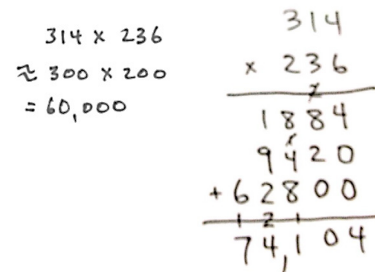 314 × 236
≈ 300 × 200
= 60,000
314
× 236
2
1884
1
9420
+ 62800
1 2 1
74,104